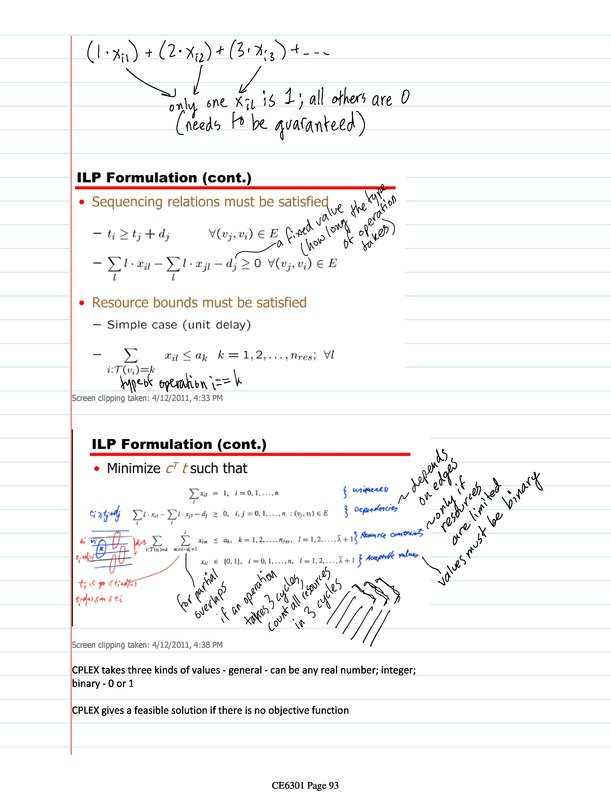 (1·x_{i1}) + (2·x_{i2}) + (3·x_{i3}) + ---
only one x_{il} is 1; all others are 0
(needs to be guaranteed)
ILP Formulation (cont.)
• Sequencing relations must be satisfied
– t_i ≥ t_j + d_j ∀(v_j, v_i) ∈ E
a fixed value
(how long the type
of operation
takes)
– ∑_l l · x_{il} − ∑_l l · x_{jl} − d_j ≥ 0 ∀(v_j, v_i) ∈ E
• Resource bounds must be satisfied
– Simple case (unit delay)
– ∑_{i:T(v_i)=k} x_{il} ≤ a_k k = 1, 2, . . . , n_{res}; ∀l
type of operation i == k
Screen clipping taken: 4/12/2011, 4:33 PM
ILP Formulation (cont.)
• Minimize c^T t such that
∑_l x_{il} = 1, i = 0, 1, . . . , n } uniqueness
t_i ≥ t_j + d_j ∑_l l · x_{il} − ∑_l l · x_{jl} − d_j ≥ 0, i, j = 0, 1, . . . , n : (v_j, v_i) ∈ E } Dependencies
~ depends
on edges
∑_{i:T(v_i)=k} ∑_{m=l−d_i+1}^{l} x_{im} ≤ a_k, k = 1, 2, . . . , n_{res}, l = 1, 2, . . . , λ̄ + 1 } Resource constraints
~ only if
resources
are limited
x_{il} ∈ {0, 1}, i = 0, 1, . . . , n, l = 1, 2, . . . , λ̄ + 1 } Acceptable values
values must be binary
for partial
overlaps
if an operation
takes 3 cycles,
count all resources
in 3 cycles
Screen clipping taken: 4/12/2011, 4:38 PM
CPLEX takes three kinds of values - general - can be any real number; integer;
binary - 0 or 1
CPLEX gives a feasible solution if there is no objective function
CE6301 Page 93